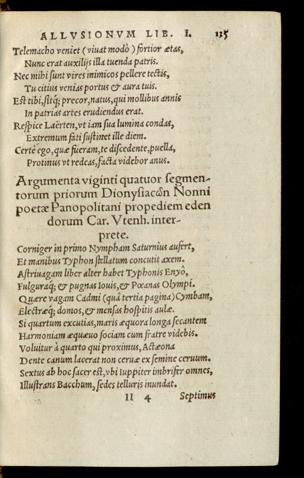 ALLVSIONVM LIB. I. 135
Telemacho veniet (viuat modò) fortior ætas,
Nunc erat auxilijs illa tuenda patris.
Nec mihi sunt vires inimicos pellere tectis,
Tu citius venias portus & aura tuis.
Est tibi, sítq; precor, natus, qui mollibus annis
In patrias artes erudiendus erat.
Respice Laërten, vt iam sua lumina condas,
Extremum fati sustinet ille diem.
Certè ego, quæ fueram, te discedente, puella,
Protinus vt redeas, facta videbor anus.
Argumenta viginti quatuor segmen-
torum priorum Dionysiacῶn Nonni
poetæ Panopolitani propediem eden
dorum Car. Vtenh. inter-
prete.
Corniger in primo Nympham Saturnius aufert,
Et manibus Typhon stellatum concutit axem.
Astriuagam liber alter habet Typhonis Enyò,
Fulguráq; & pugnas Iouis, & Pæanas Olympi.
Quære vagam Cadmi (quá tertia pagina) Cymbam,
Electræq; domos, & mensas hospitis aulæ.
Si quartum excutias, maris æquora longa secantem
Harmoniam æquæuo sociam cum fratre videbis.
Voluitur à quarto qui proximus, Actæona
Dente canum lacerat non ceruæ ex semine ceruum.
Sextus ab hoc sacer est, vbi Iuppiter imbrifer omnes,
Illustrans Bacchum, sedes telluris inundat.
II 4 Septimus